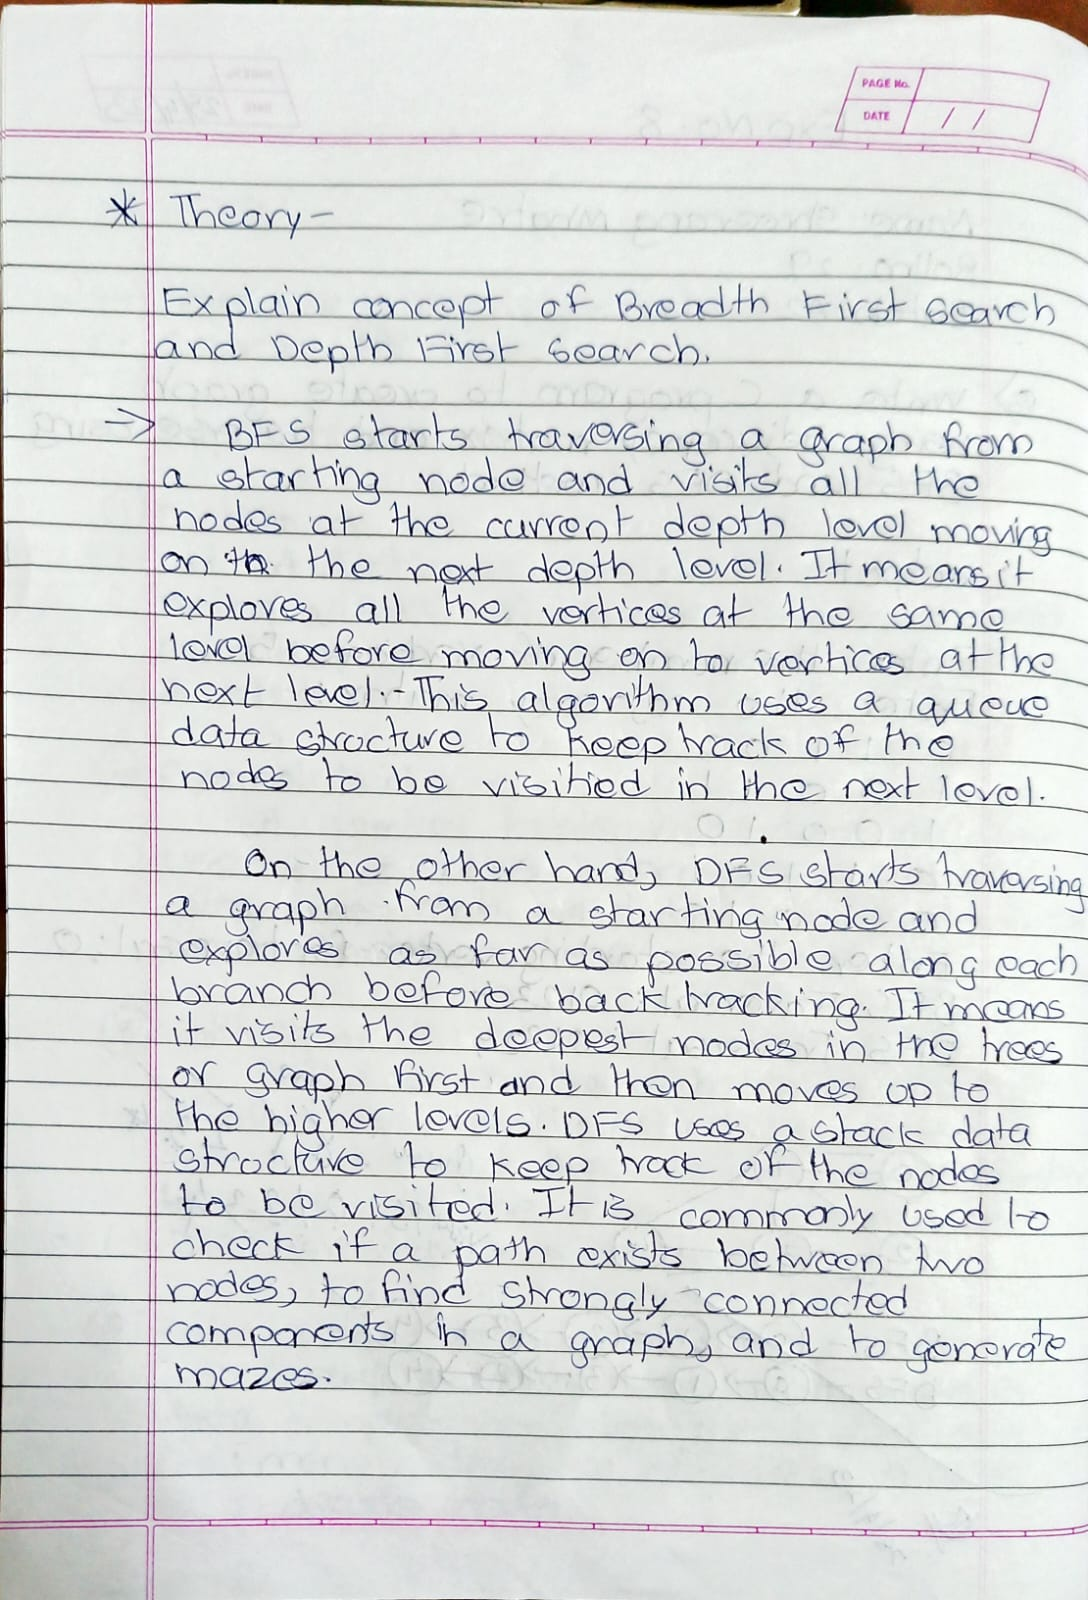 PAGE No.
DATE / /
* Theory -
Explain concept of Breadth First Search
and Depth First Search.
-> BFS starts traversing a graph from
a starting node and visits all the
nodes at the current depth level moving
on to the next depth level. It means it
explores all the vertices at the same
level before moving on to vertices at the
next level. This algorithm uses a queue
data structure to keep track of the
nodes to be visitied in the next level.
On the other hand, DFS starts traversing
a graph from a starting node and
explores as far as possible along each
branch before back tracking. It means
it visits the deepest nodes in the trees
or graph first and then moves up to
the higher levels. DFS uses a stack data
structure to keep track of the nodes
to be visited. It is commonly used to
check if a path exists between two
nodes, to find strongly connected
components in a graph, and to generate
mazes.